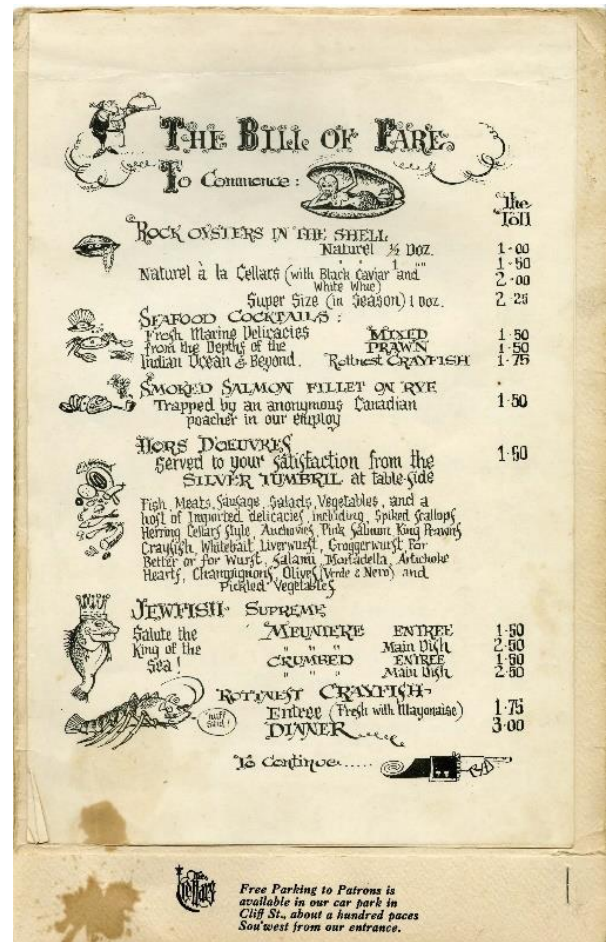 THE BILL OF FARE
To Commence:
The Toll
ROCK OYSTERS IN THE SHELL
Naturel ½ Doz. 1·00
" " 1 " 1·50
Naturel à la Cellars (with Black Caviar and White Wine) 2·00
Super Size (in Season) 1 Doz. 2·25
SEAFOOD COCKTAILS:
Fresh Marine Delicacies MIXED 1·50
from the Depths of the PRAWN 1·50
Indian Ocean & Beyond. Rottnest CRAYFISH 1·75
SMOKED SALMON FILLET ON RYE
Trapped by an anonymous Canadian 1·50
poacher in our employ
HORS D'OEUVRES
Served to your satisfaction from the 1·50
SILVER TUMBRIL at table-side
Fish, Meats, Sausage, Salads, Vegetables, and a
host of Imported delicacies, including, Spiked Scallops,
Herring Cellars Style, Anchovies, Pink Salmon, King Prawns
Crayfish, Whitebait, Liverwurst, Groggerwurst For
Better or for Wurst, Salami, Mortadella, Artichoke
Hearts, Champignons, Olives (Verde & Nero) and
Pickled Vegetables
JEWFISH SUPREME
Salute the MEUNIERE ENTREE 1·50
King of the " " " Main Dish 2·50
Sea! CRUMBED ENTREE 1·50
" " " Main Dish 2·50
ROTTNEST CRAYFISH
nuff said!
Entree (Fresh with Mayonaise) 1·75
DINNER 3·00
To Continue.....
The Cellars
Free Parking to Patrons is
available in our car park in
Cliff St., about a hundred paces
Sou'west from our entrance.